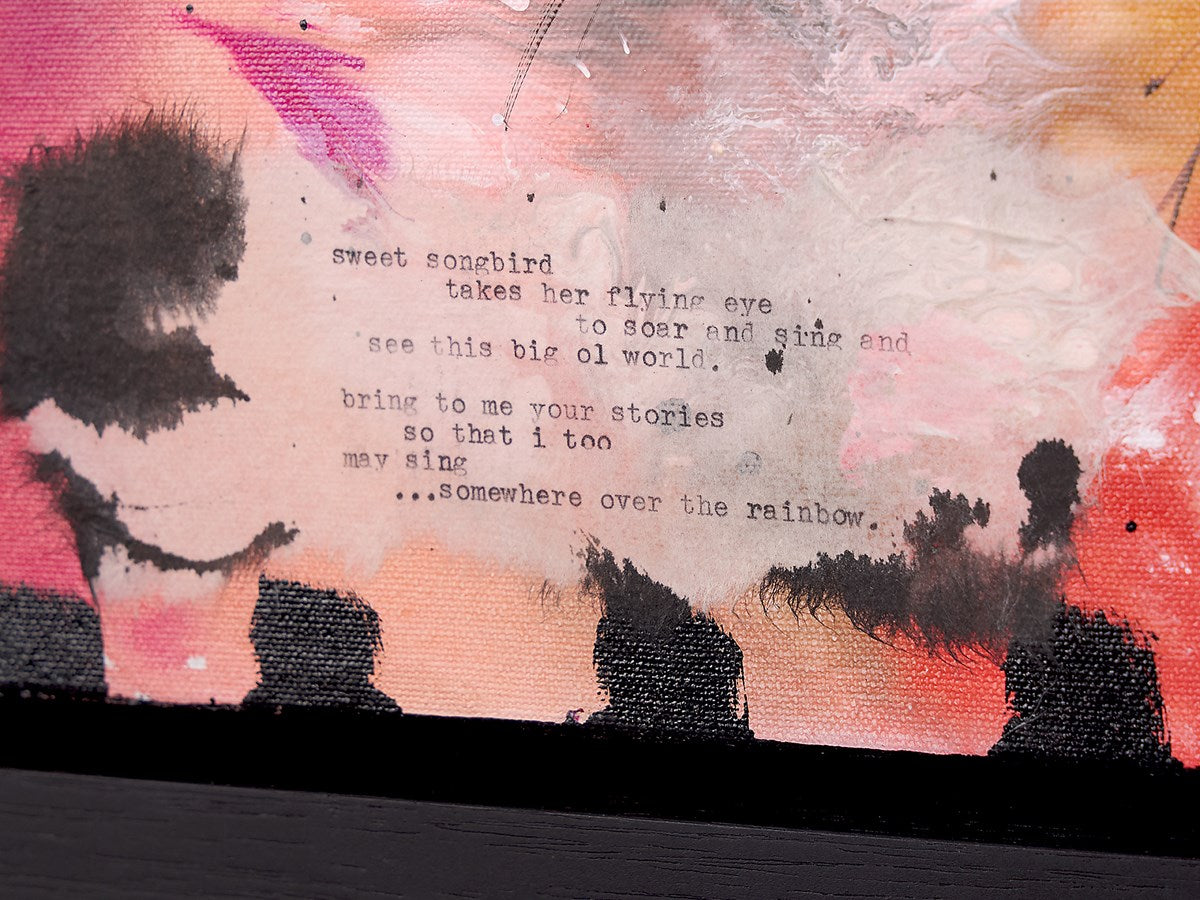 sweet songbird
takes her flying eye
to soar and sing and
see this big ol world.
bring to me your stories
so that i too
may sing
...somewhere over the rainbow.